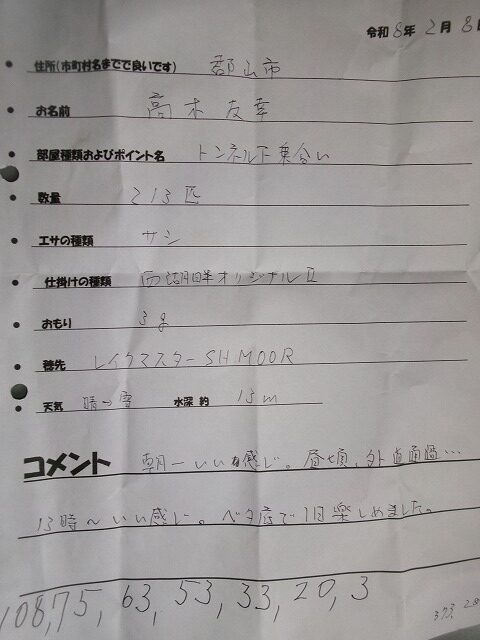 令和8年2月8日
住所(市町村名までで良いです) 郡山市
お名前 高木友幸
部屋種類およびポイント名 トンネル下乗合い
数量 213匹
エサの種類 サシ
仕掛けの種類 西湖畔オリジナルⅡ
おもり 3g
穂先 レイクマスターSH MOOR
天気 晴→雪 水深 約 13m
コメント 朝一いい感じ。昼頃、外道通過…
13時〜いい感じ。ベタ底で1日楽しめました。
108,75,63,53,33,20,3